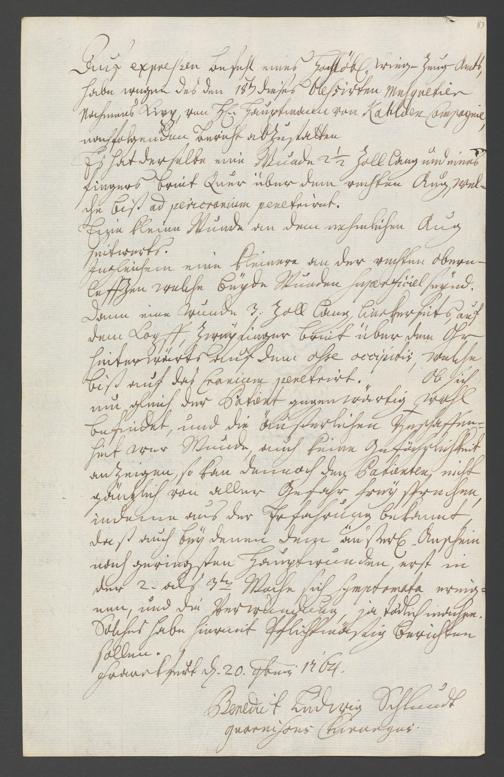 Auf expressen befehl eines Hochlöbl. Kriegs-Zeug Amts,
habe wegen des den 18t dieses blessirten Musquetier
Nahmens Kurz, von H. Hauptmann von Kahlden Compagnie,
nachfolgenden bericht abzustatten
Es hat derselbe eine Wunde 2 1/2 Zoll lang und eines
fingers breit quer über dem rechten Aug, wel-
che biß ad pericranium penetrirt.
Eine kleine Wunde an dem nehmlichen Aug
seitwerts.
Ingleichem eine kleinere an der rechten obern-
leffzen welche beyde Wunden superficiel seynd.
Dann eine Wunde 3. Zoll lang, linckerseits, auf
dem Kopff zweyfinger breit über dem Ohr
hinterwärts auf dem osse occipitis, welche
biß auf das Cranium penetrirt. Ob sich
nun gleich der Patient gegenwärtig wohl
befindet, und die äußerlichen Beschaffen-
heit der Wunde, auch keine Gefährlichkeit
anzeigen, so kan dennoch den Patienten nicht
gäntzlich von aller Gefahr frey sprechen,
indeme aus der Erfahrung bekannt
daß auch bey denen dem äußerl. Ansehen
nach geringsten Hauptwunden, erst in
der 2. od. 3ten Woche sich symptomata ereig-
nen, und die Verwundung zu tödl. machen.
Solches habe hiermit Pflichtmäßig berichten
sollen.
Franckfurt d. 20. 1764.
Benedict Ludwig Schmidt
Guarnisons Chirurgus.